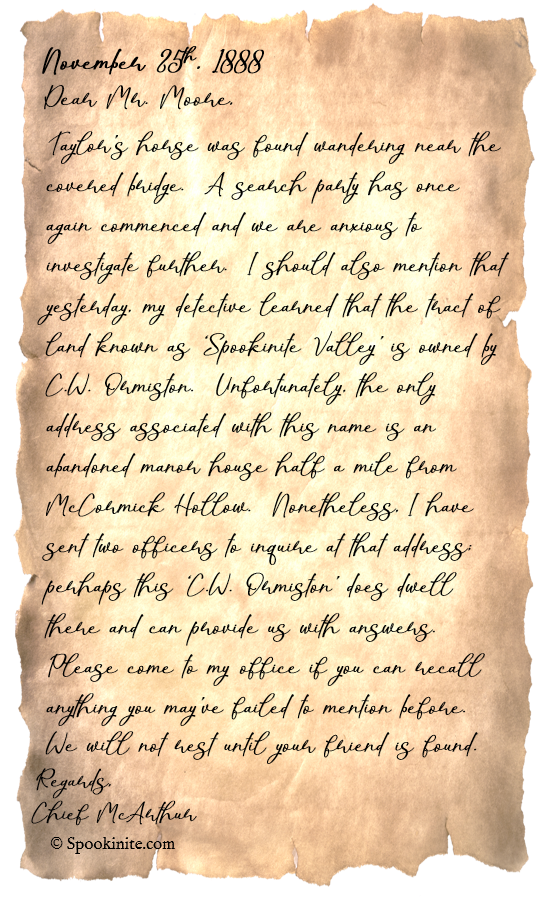 November 25th, 1888
Dear Mr. Moore,
Taylor's horse was found wandering near the
covered bridge. A search party has once
again commenced and we are anxious to
investigate further. I should also mention that
yesterday, my detective learned that the tract of
land known as 'Spookinite Valley' is owned by
C.W. Ormiston. Unfortunately, the only
address associated with this name is an
abandoned manor house half a mile from
McCormick Hollow. Nonetheless, I have
sent two officers to inquire at that address;
perhaps this 'C.W. Ormiston' does dwell
there and can provide us with answers.
Please come to my office if you can recall
anything you may've failed to mention before.
We will not rest until your friend is found.
Regards,
Chief McArthur
© Spookinite.com